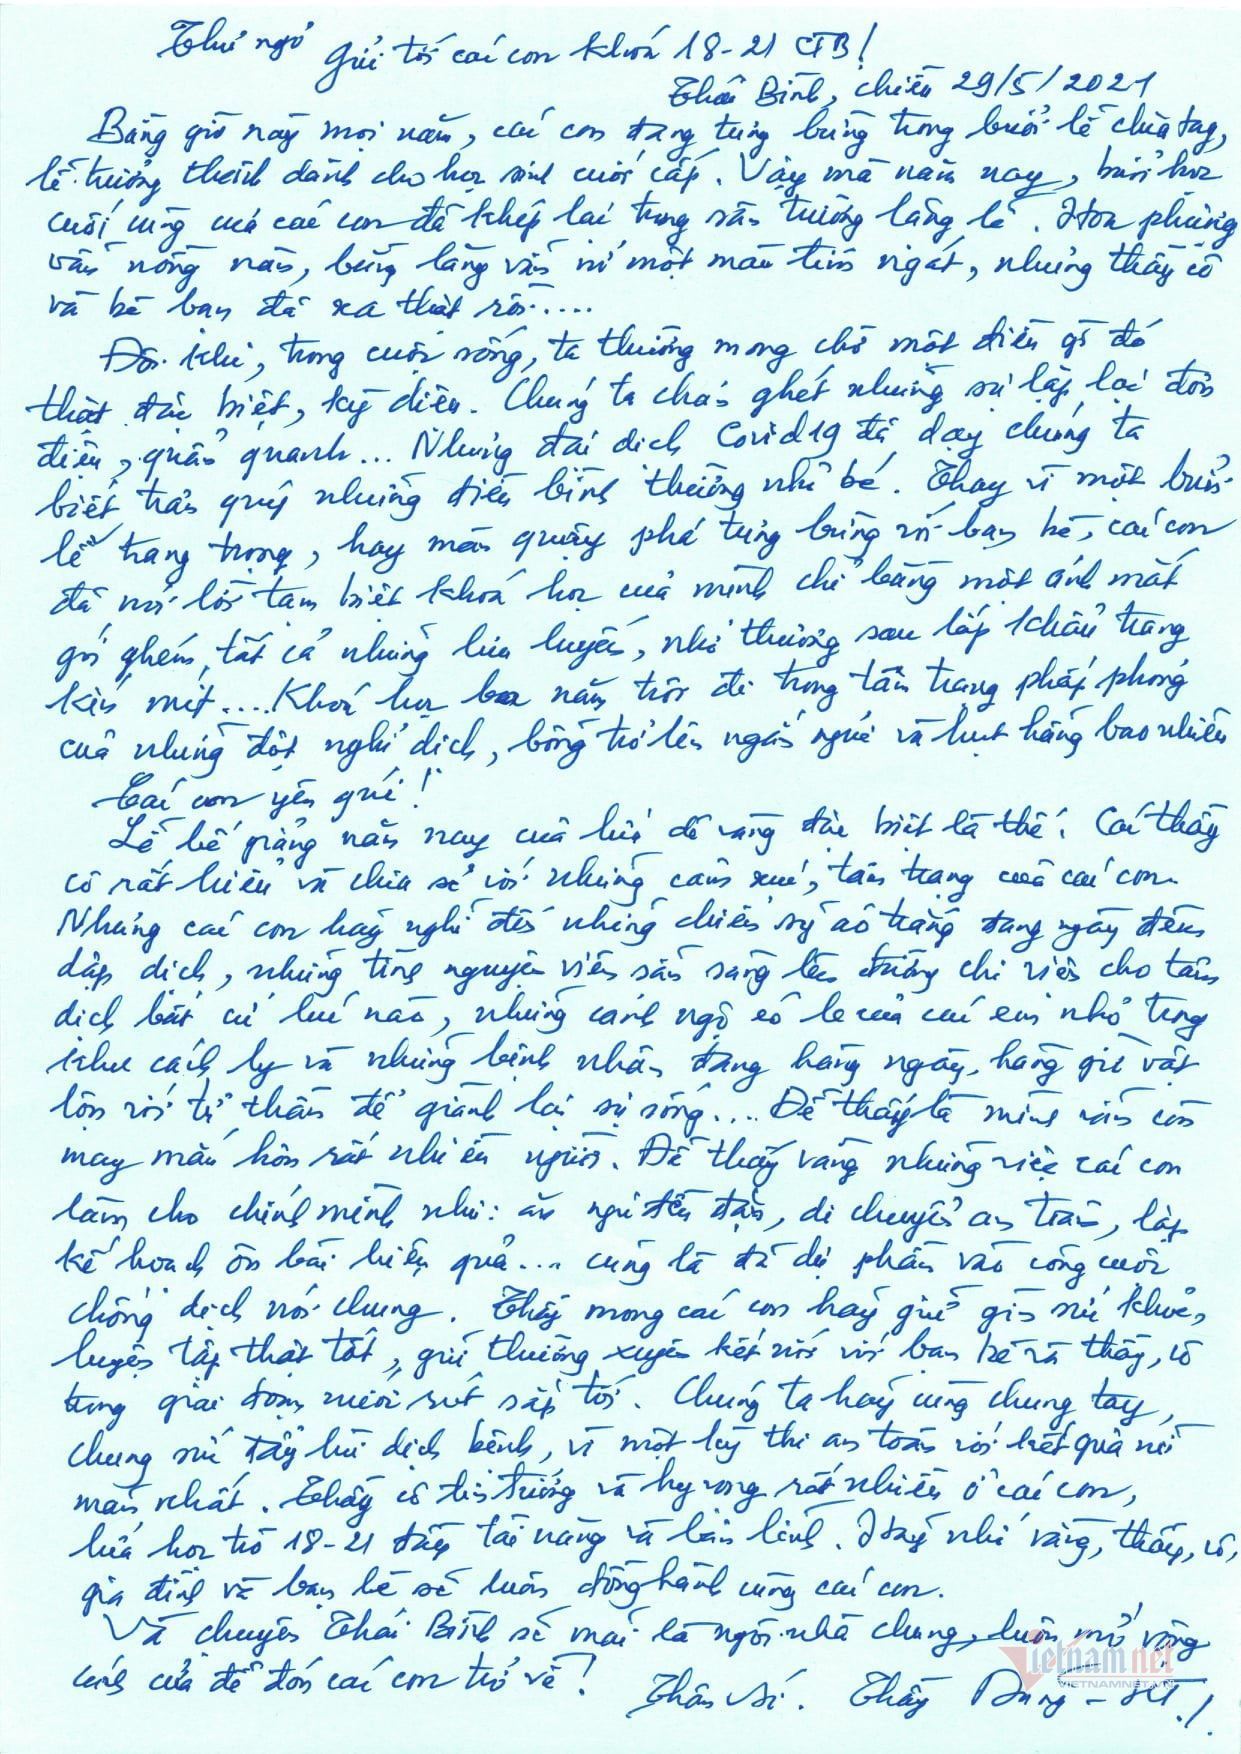 Thư ngỏ gửi tới các con khoá 18-21 CTB!
Thái Bình, chiều 29/5/2021
Bằng giờ này mọi năm, các con đang tưng bừng trong buổi lễ chia tay,
lễ trưởng thành dành cho học sinh cuối cấp. Vậy mà năm nay, buổi học
cuối cùng của các con đã khép lại trong sân trường lặng lẽ. Hoa phượng
vẫn nồng nàn, bằng lăng vẫn một màu tím ngát, nhưng thầy cô
và bè bạn đã xa thật rồi....
Đôi khi, trong cuộc sống, ta thường mong chờ một điều gì đó
thật đặc biệt, kỳ diệu. Chúng ta chán ghét những sự lặp lại đơn
điệu, quẩn quanh... Nhưng đại dịch Covid19 đã dạy chúng ta
biết trân quý những điều bình thường nhỏ bé. Thay vì một buổi
lễ trang trọng, hay màn quậy phá tưng bừng với bạn bè, các con
đã nói lời tạm biệt khoá học của mình chỉ bằng một ánh mắt
gói ghém tất cả những lưu luyến, nhớ thương sau lớp khẩu trang
kín mít.... Khoá học ba năm trôi đi trong tâm trạng phấp phỏng
của những đợt nghỉ dịch, bỗng trở lên ngắn ngủi và hụt hẫng bao nhiêu
Các con yêu quí!
Lễ bế giảng năm nay của lứa dê vàng đặc biệt là thế. Các thầy
cô rất hiểu và chia sẻ với những cảm xúc, tâm trạng của các con.
Nhưng các con hãy nghĩ đến những chiến sỹ áo trắng đang ngày đêm
dập dịch, những tình nguyện viên sẵn sàng lên đường chi viện cho tâm
dịch bất cứ lúc nào, những cảnh ngộ éo le của các em nhỏ trong
khu cách ly và những bệnh nhân đang hàng ngày, hàng giờ vật
lộn với tử thần để giành lại sự sống.... Để thấy là mình vẫn còn
may mắn hơn rất nhiều người. Để thấy rằng những việc các con
làm cho chính mình như: ăn ngủ đều đặn, di chuyển an toàn, lập
kế hoạch ôn bài hiệu quả... cũng là đã dự phần vào công cuộc
chống dịch nói chung. Thầy mong các con hãy giữ gìn sức khỏe,
luyện tập thật tốt, giữ thường xuyên kết nối với bạn bè và thầy, cô
trong giai đoạn nước rút sắp tới. Chúng ta hãy cùng chung tay,
chung sức đẩy lùi dịch bệnh, vì một kỳ thi an toàn với kết quả mỹ
mãn nhất. Thầy cô tin tưởng và hy vọng rất nhiều ở các con,
lứa học trò 18-21 đầy tài năng và bản lĩnh. Hãy nhớ rằng, thầy, cô,
gia đình và bạn bè sẽ luôn đồng hành cùng các con.
Và chuyên Thái Bình sẽ mãi là ngôi nhà chung, luôn mở rộng
cánh cửa để đón các con trở về!
Thân ái. Thầy Dung - HT./.
Vietnamnet
VIETNAMNET.VN